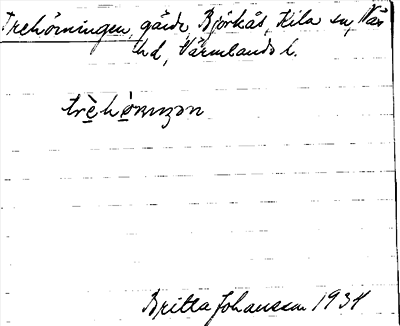 Trehörningen, gärde, Björkås, Kila sn, Näs
hd, Värmlands l.
trèhö̀rnıŋən
Britta Johansson 1934